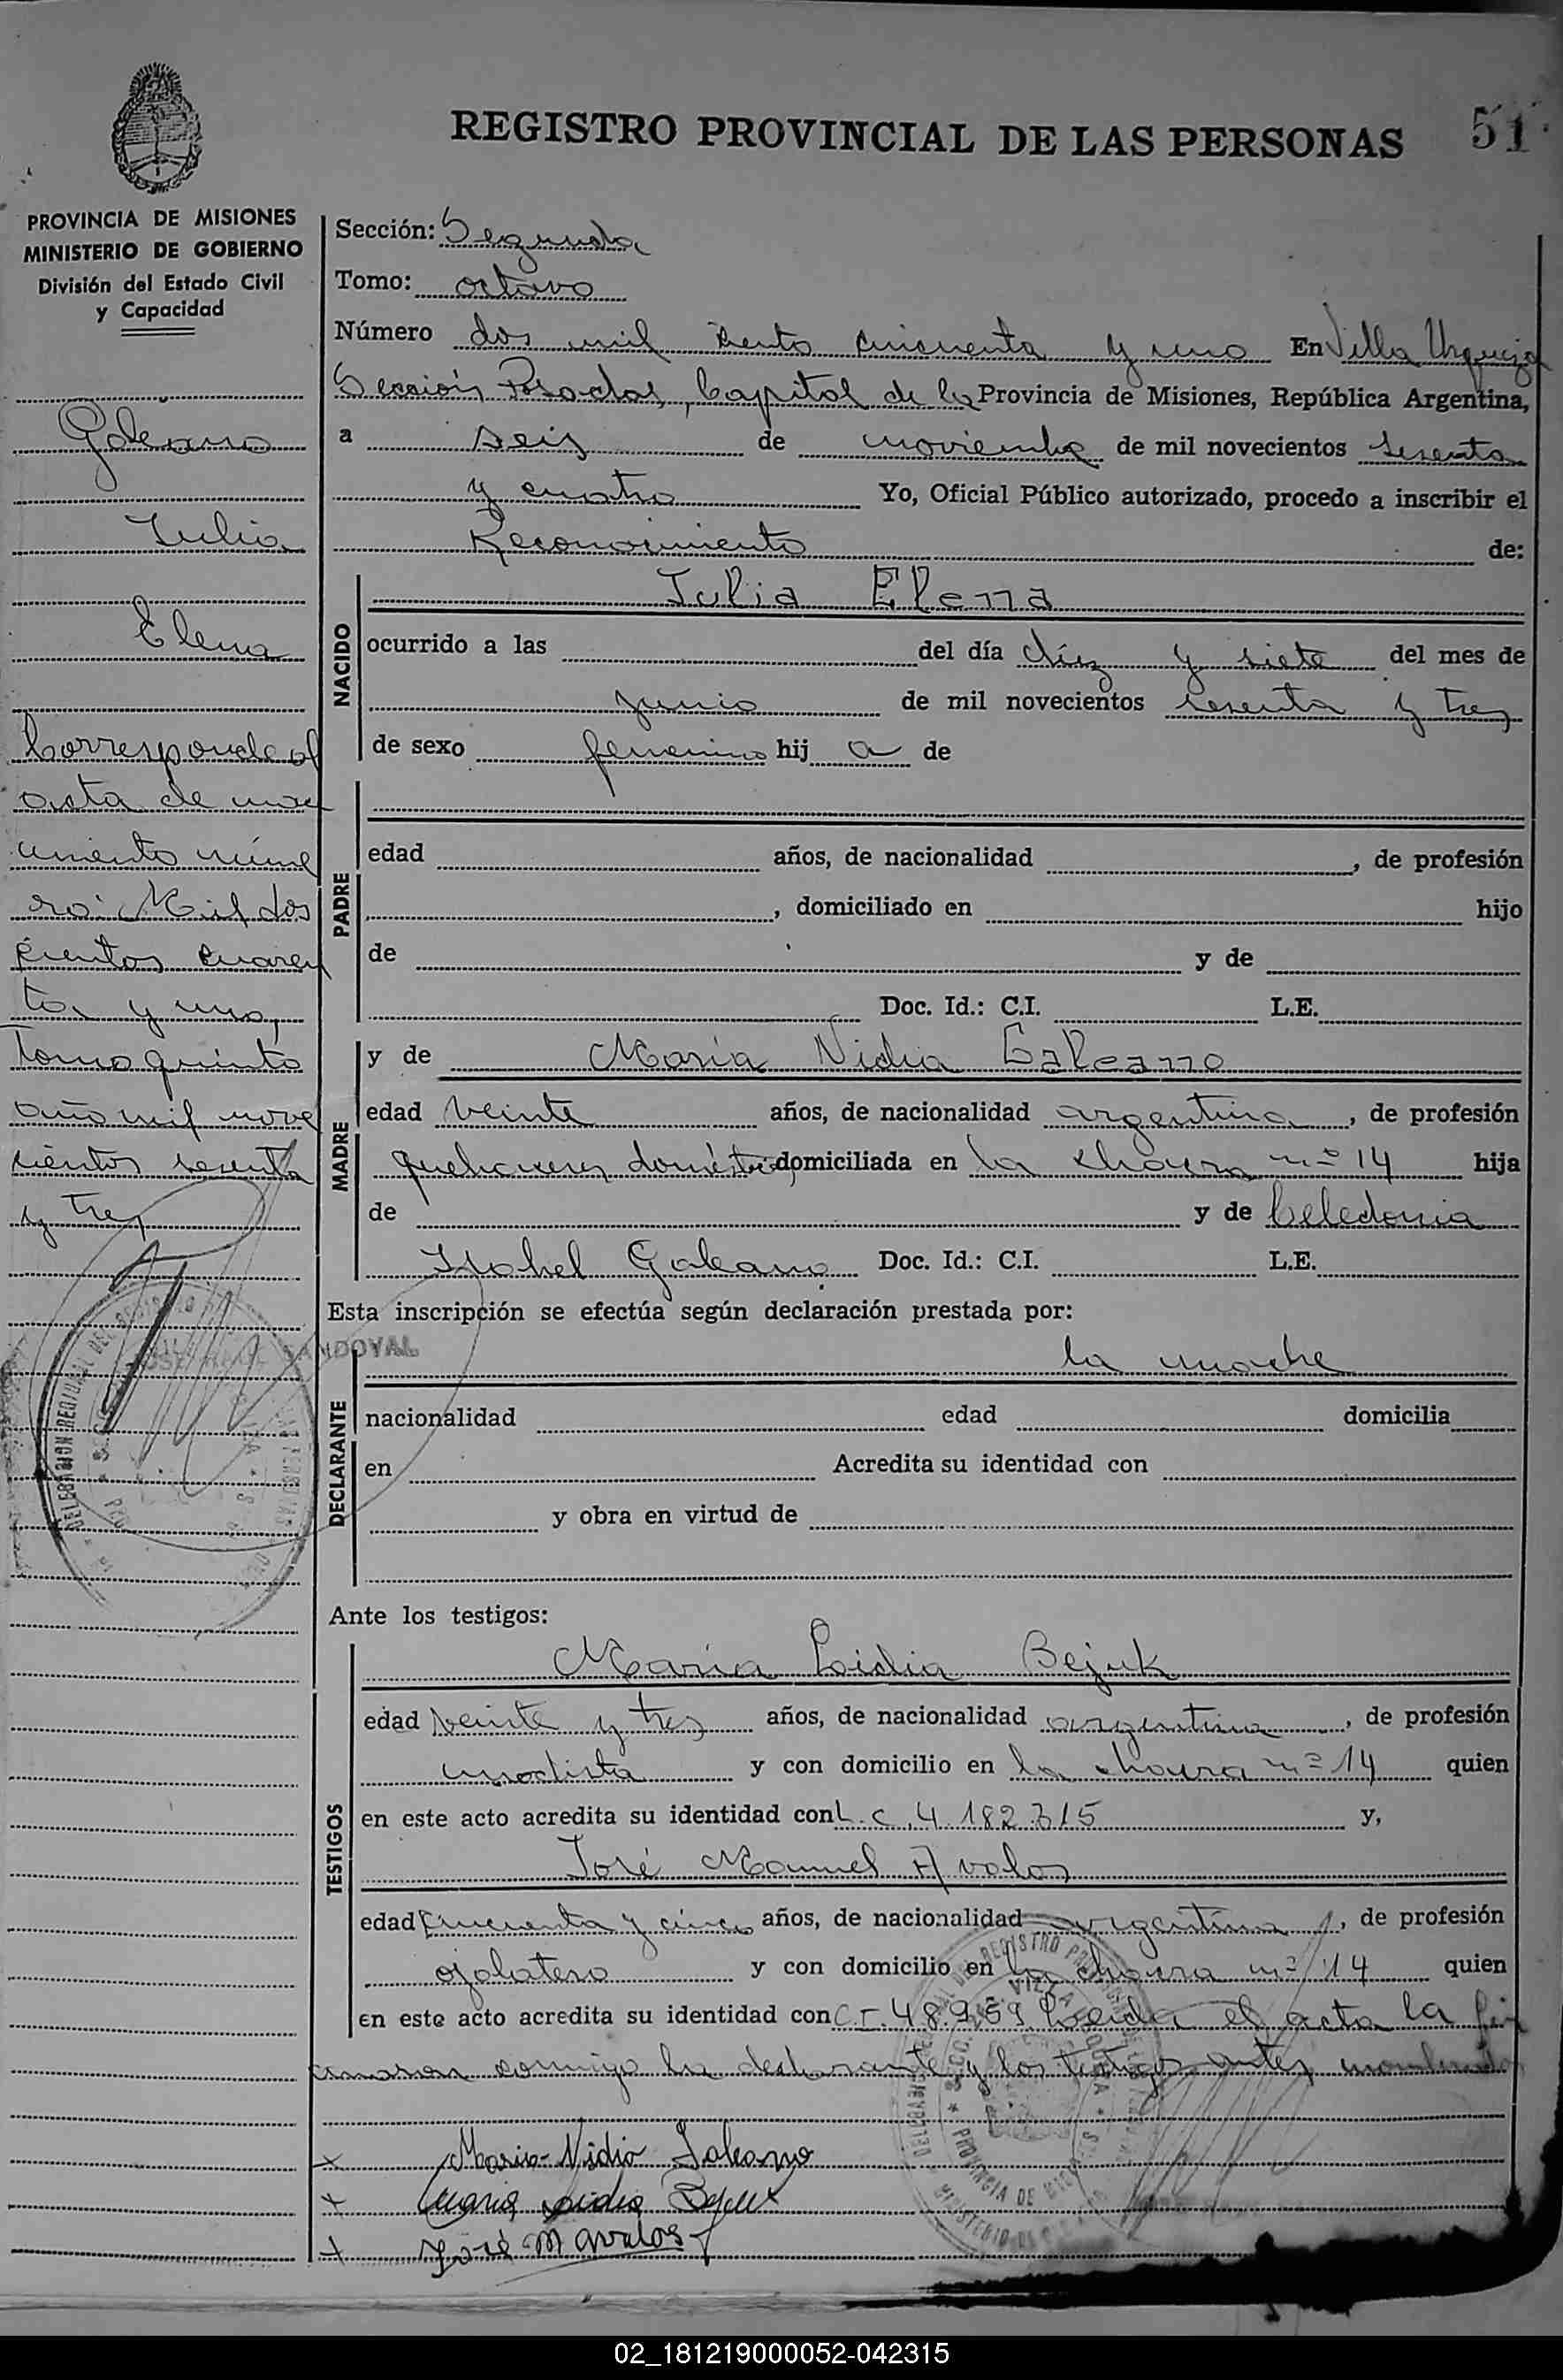 REGISTRO PROVINCIAL DE LAS PERSONAS 51
PROVINCIA DE MISIONES
MINISTERIO DE GOBIERNO
División del Estado Civil
y Capacidad
Galeano
Julia
Elena
Corresponde al
acta de naci
miento núme
ro: Mil dos
cientos cuaren
ta y uno,
Tomo quinto
año mil nove
cientos sesenta
y tres
Sección: Segunda
Tomo: octavo
Número dos mil ciento cincuenta y uno En Villa Urquiza
Sección Posadas, Capital de la Provincia de Misiones, República Argentina,
a seis de noviembre de mil novecientos sesenta
y cuatro Yo, Oficial Público autorizado, procedo a inscribir el
Reconocimiento de:
NACIDO
Julia Elena
ocurrido a las del día diez y siete del mes de
junio de mil novecientos sesenta y tres
de sexo femenino hij a de
PADRE
edad años, de nacionalidad , de profesión
, domiciliado en hijo
de y de
Doc. Id.: C.I. L.E.
MADRE
y de María Nidia Galeano
edad veinte años, de nacionalidad argentina , de profesión
quehaceres domésticos domiciliada en la chacra nº 14 hija
de y de Celedonia
Isabel Galeano Doc. Id.: C.I. L.E.
Esta inscripción se efectúa según declaración prestada por:
SANDOVAL
DECLARANTE
la madre
nacionalidad edad domicilia
en Acredita su identidad con
y obra en virtud de
Ante los testigos:
TESTIGOS
María Lidia Bejuk
edad veinte y tres años, de nacionalidad argentina , de profesión
modista y con domicilio en la chacra nº 14 quien
en este acto acredita su identidad con L.C. 4.182.315 y,
José Manuel Avalos
edad cincuenta y cinco años, de nacionalidad argentina , de profesión
ojalatero y con domicilio en la chacra nº 14 quien
en este acto acredita su identidad con C.I. 48.959 Leída el acta la fir
maron conmigo la declarante y los testigos antes nombrados
x Maria Nidia Galeano
x Maria Lidia Bejuk
x José M Avalos
02_181219000052-042315